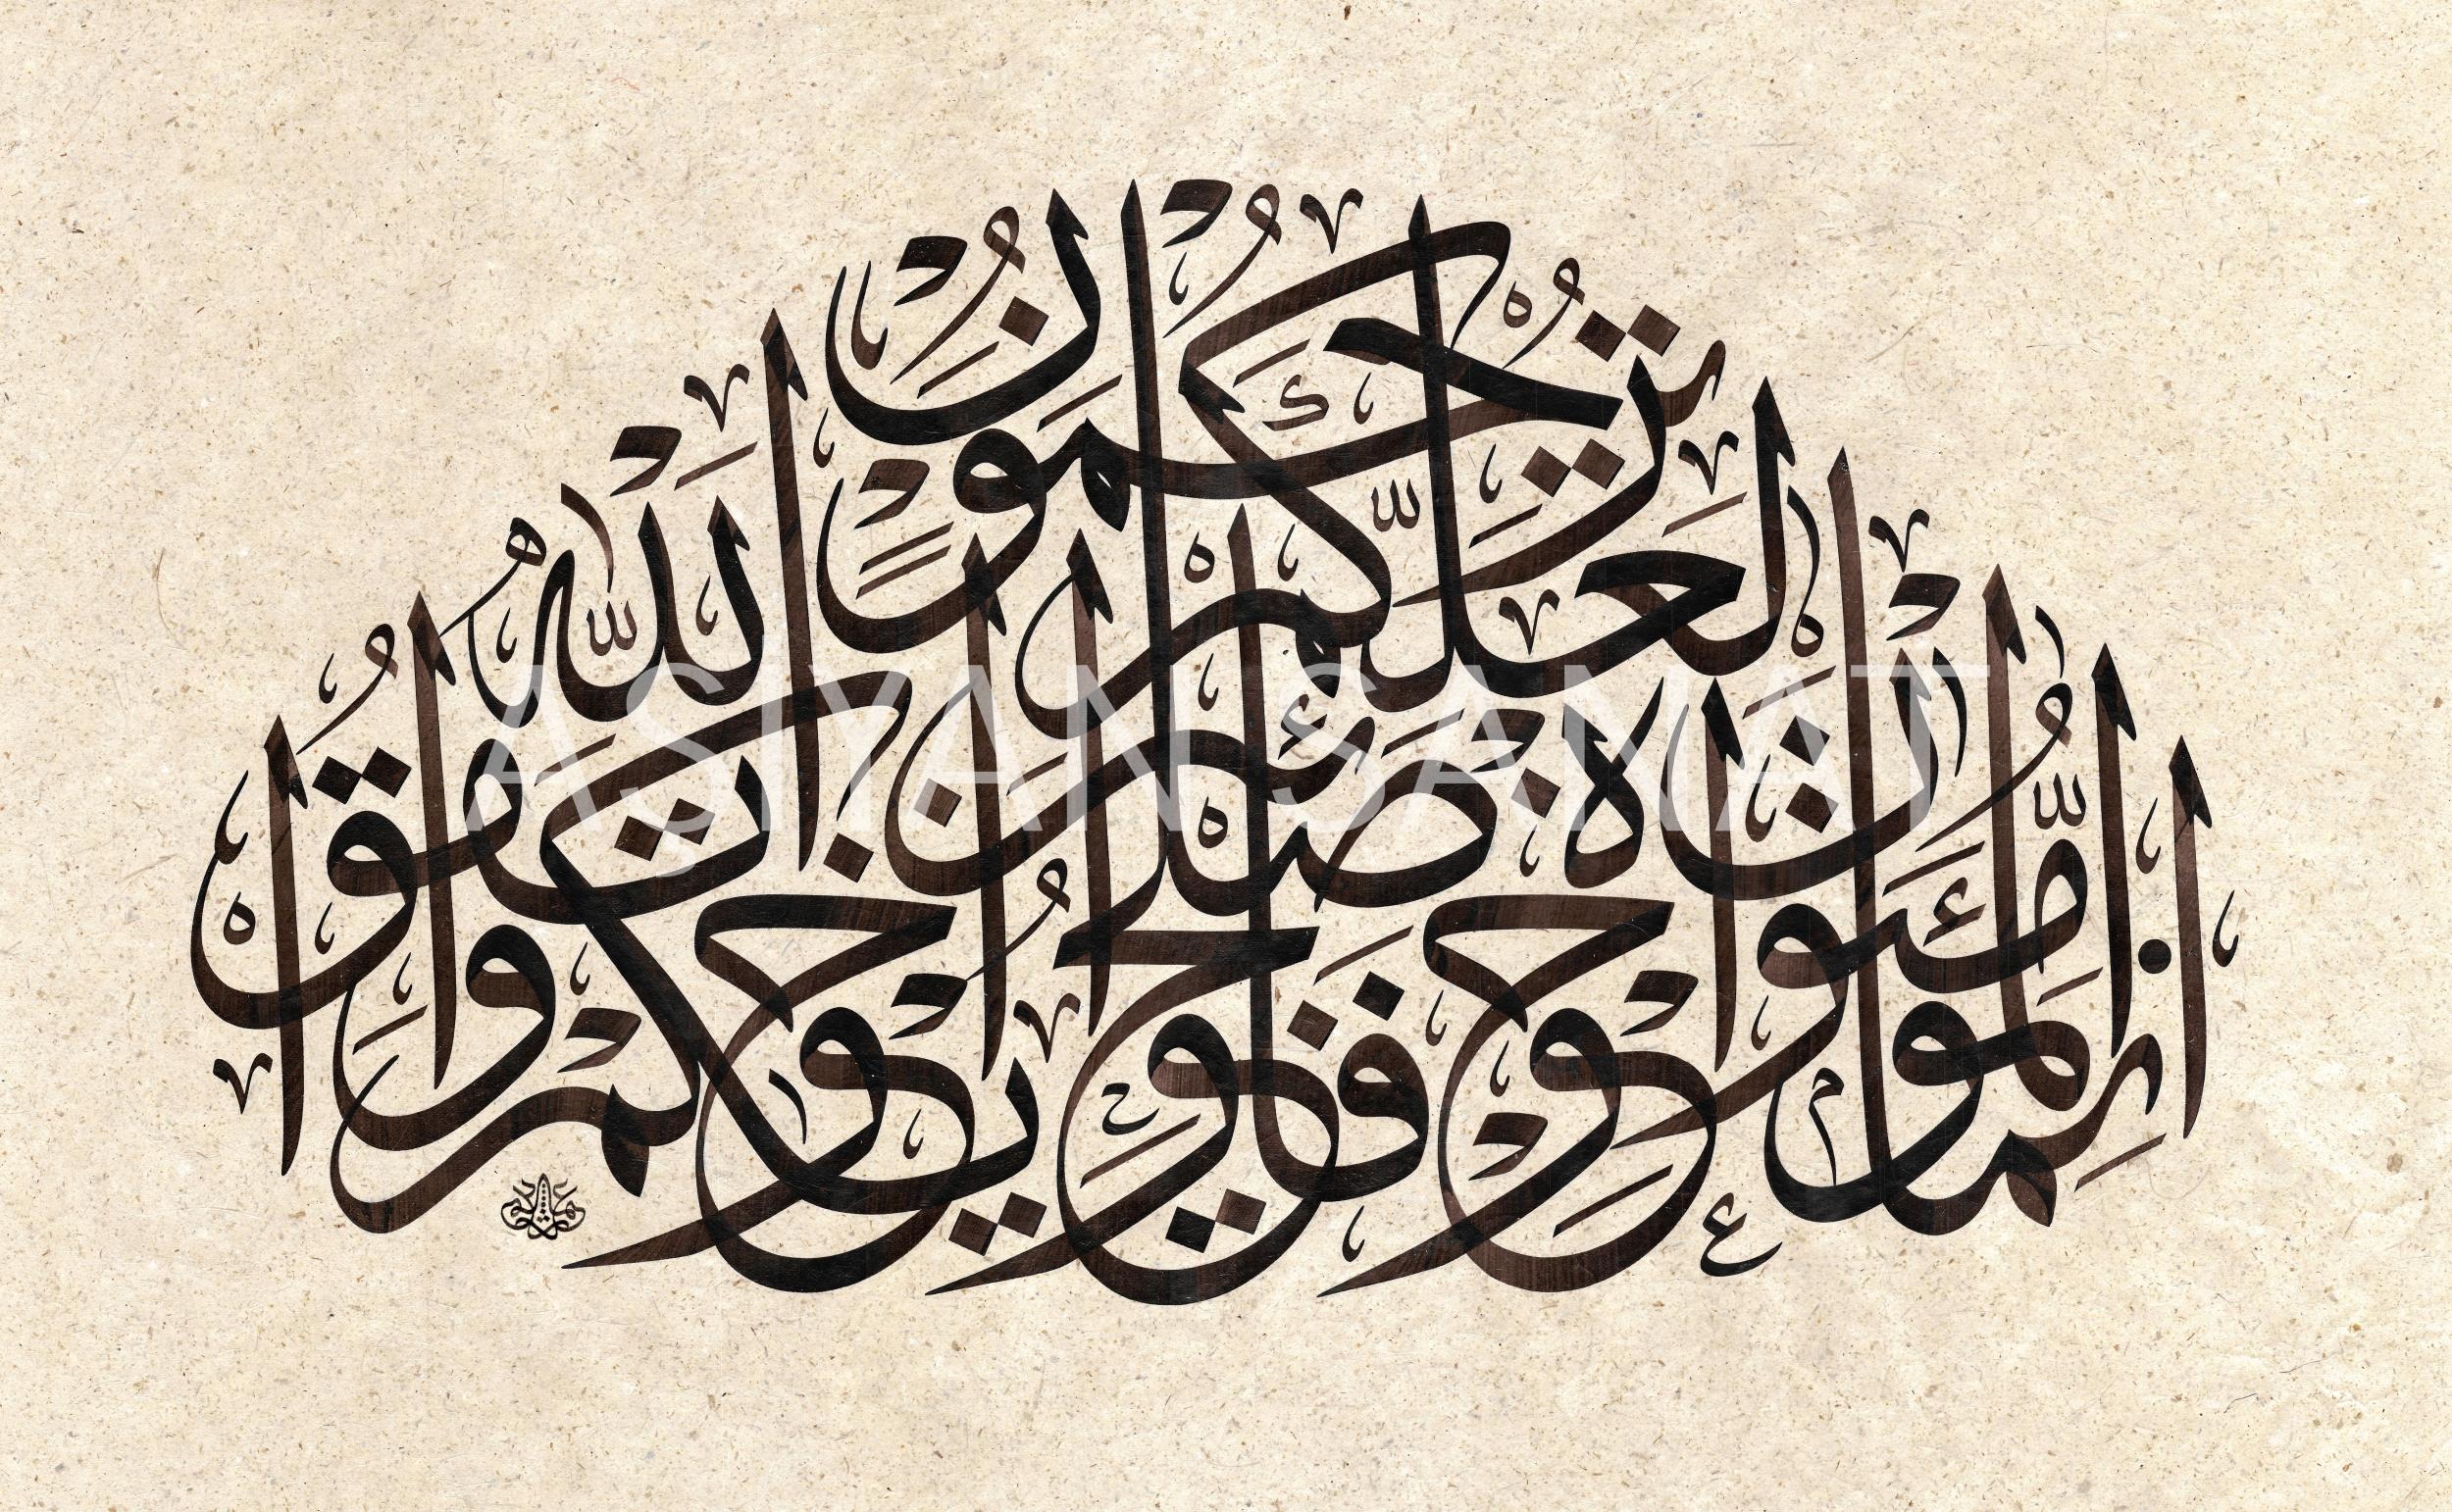 إِنَّمَا الْمُؤْمِنُونَ إِخْوَةٌ فَأَصْلِحُوا بَيْنَ أَخَوَيْكُمْ وَاتَّقُوا اللَّهَ لَعَلَّكُمْ تُرْحَمُونَ
ASİYAN SANAT